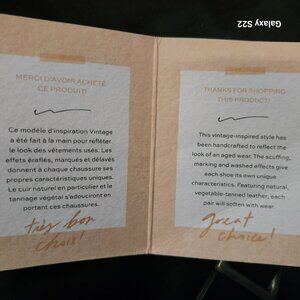 Galaxy S22
MERCI D'AVOIR ACHETÉ
CE PRODUIT!
Ce modèle d'inspiration Vintage
a été fait à la main pour refléter
le look des vêtements usés. Les
effets éraflés, marqués et délavés
donnent à chaque chaussure ses
propres caractéristiques uniques.
Le cuir naturel en particulier et le
tannage végétal s'adouciront en
portant ces chaussures.
très bon
choix!
THANKS FOR SHOPPING
THIS PRODUCT!
This vintage-inspired style has
been handcrafted to reflect the
look of an aged wear. The scuffing,
marking and washed effects give
each shoe its own unique
characteristics. Featuring natural,
vegetable-tanned leather, each
pair will soften with wear.
great
choice!